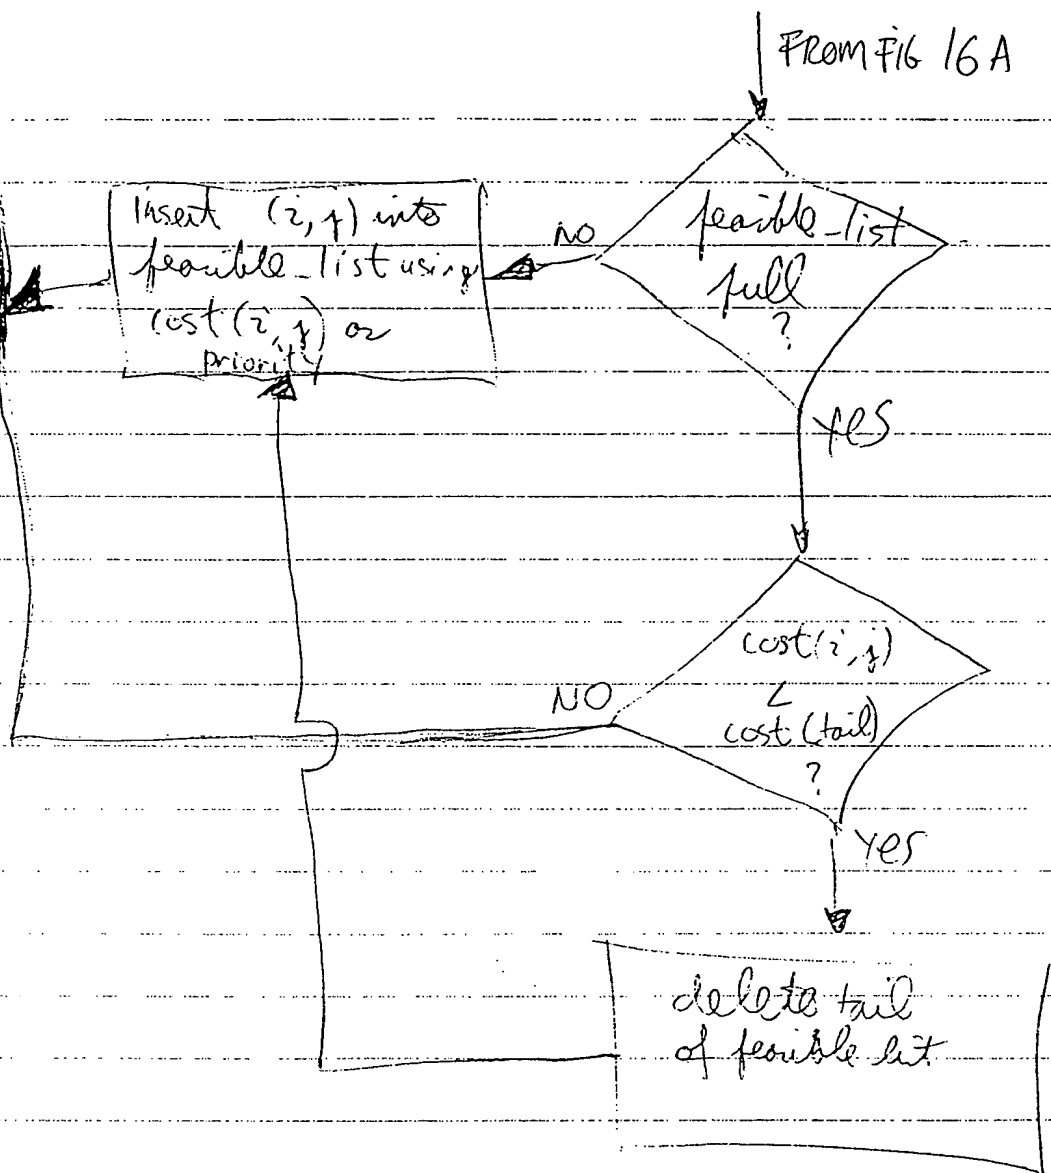 FROM FIG 16A
feasible_list
full
?
NO
Insert (i,j) into
feasible_list using
cost(i,j) as
priority
yes
cost(i,j)
<
cost(tail)
?
NO
yes
delete tail
of feasible list